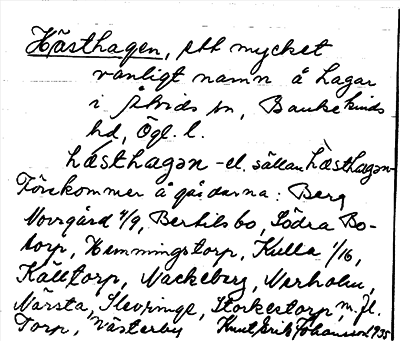 Hästhagen, ett mycket
vanligt namn å hagar
i Åtvids sn, Bankekinds
hd, Ögl. l.
hásthagən - el. sällan hàsthagən
Förekommer å gårdarna: Berg
Norrgård 4/9, Bertilsbo, Södra Bo-
torp, Hemmingstorp, Kulla 1/16,
Källtorp, Nackeberg, Nerholm,
Närsta, Slevringe, Storkestorp, m. fl.
Torp, Västerby Knut Erik Johansson 1935